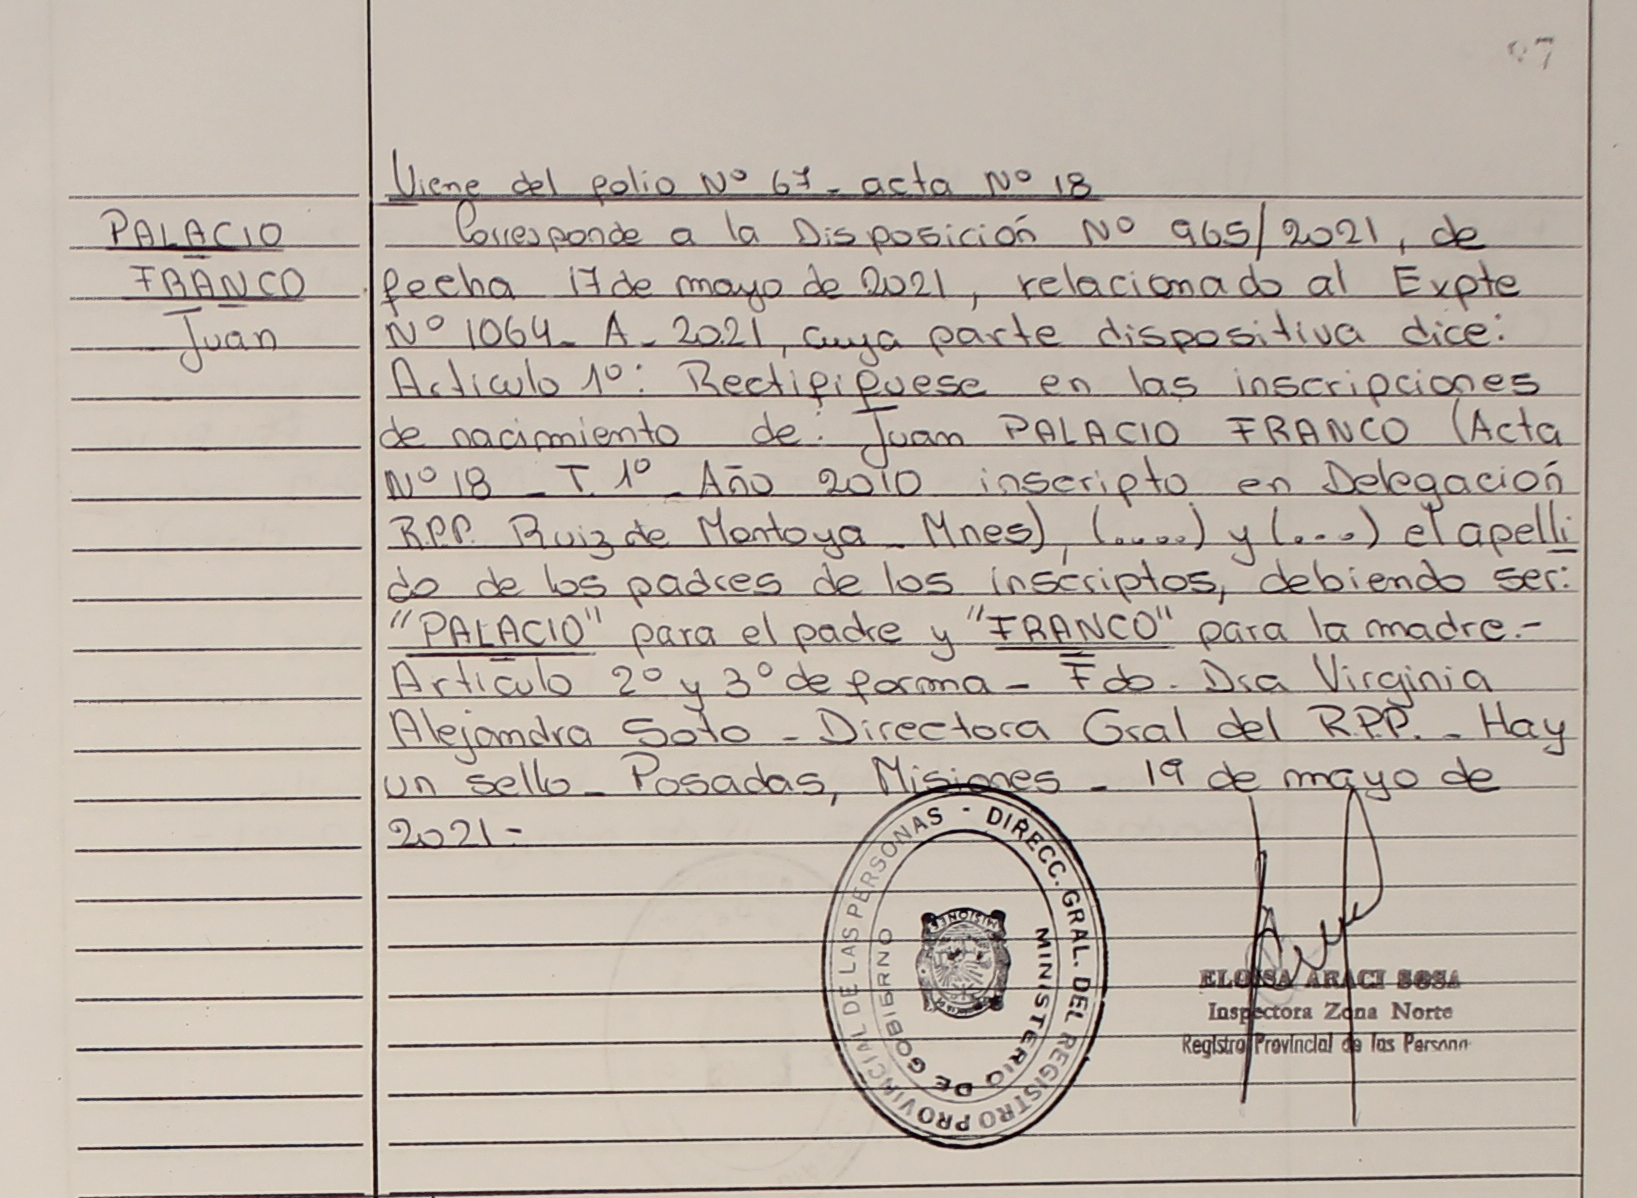 97
Viene del folio Nº 67 - acta Nº 18
PALACIO
FRANCO
Juan
Corresponde a la Disposición Nº 965/2021, de
fecha 17 de mayo de 2021, relacionado al Expte
Nº 1064 - A - 2021, cuya parte dispositiva dice:
Artículo 1º: Rectifífuese en las inscripciones
de nacimiento de: Juan PALACIO FRANCO (Acta
Nº 18 - T. 1º - Año 2010 inscripto en Delegación
R.P.P. Ruiz de Montoya - Mnes), (.....) y (....) el apelli
do de los padres de los inscriptos, debiendo ser:
"PALACIO" para el padre y "FRANCO" para la madre.-
Artículo 2º y 3º de forma - Fdo. Dra Virginia
Alejandra Soto - Directora Gral del R.P.P. - Hay
un sello - Posadas, Misiones - 19 de mayo de
2021 -
DIRECC. GRAL. DEL REGISTRO PROVINCIAL DE LAS PERSONAS -
MINISTERIO DE GOBIERNO
MISIONES
ELOISA ARACI SOSA
Inspectora Zona Norte
Registro Provincial de las Personas